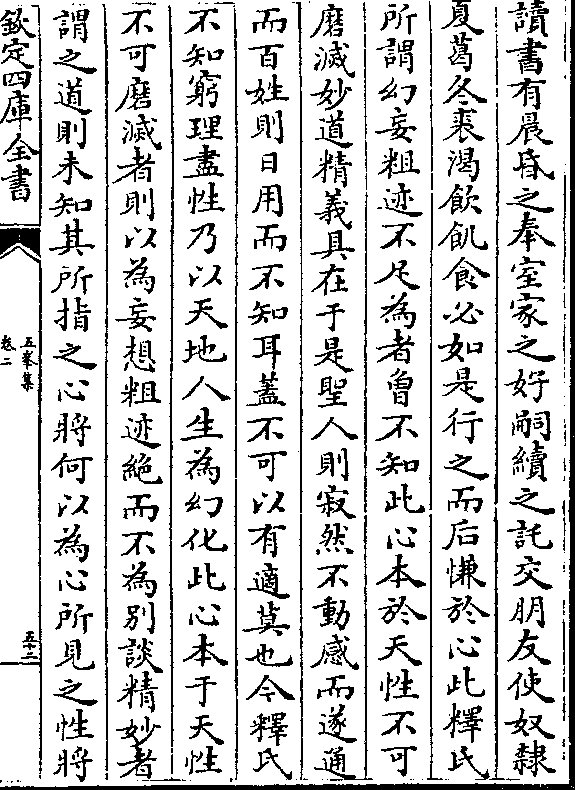 讀書有晨昏之奉室家之好嗣續之託交朋友使奴隸
夏葛冬裘渴飲飢食必如是行之而后慊於心此釋氏
所謂幻妄粗迹不足為者曾不知此心本於天性不可
磨滅妙道精義具在于是聖人則寂然不動感而遂通
而百姓則日用而不知耳蓋不可以有適莫也今釋氏
不知窮理盡性乃以天地人生為幻化此心本于天性
不可磨滅者則以為妄想粗迹絕而不為別談精妙者
謂之道則未知其所指之心將何以為心所見之性將
欽定四庫全書
五峯集
卷二
五十二